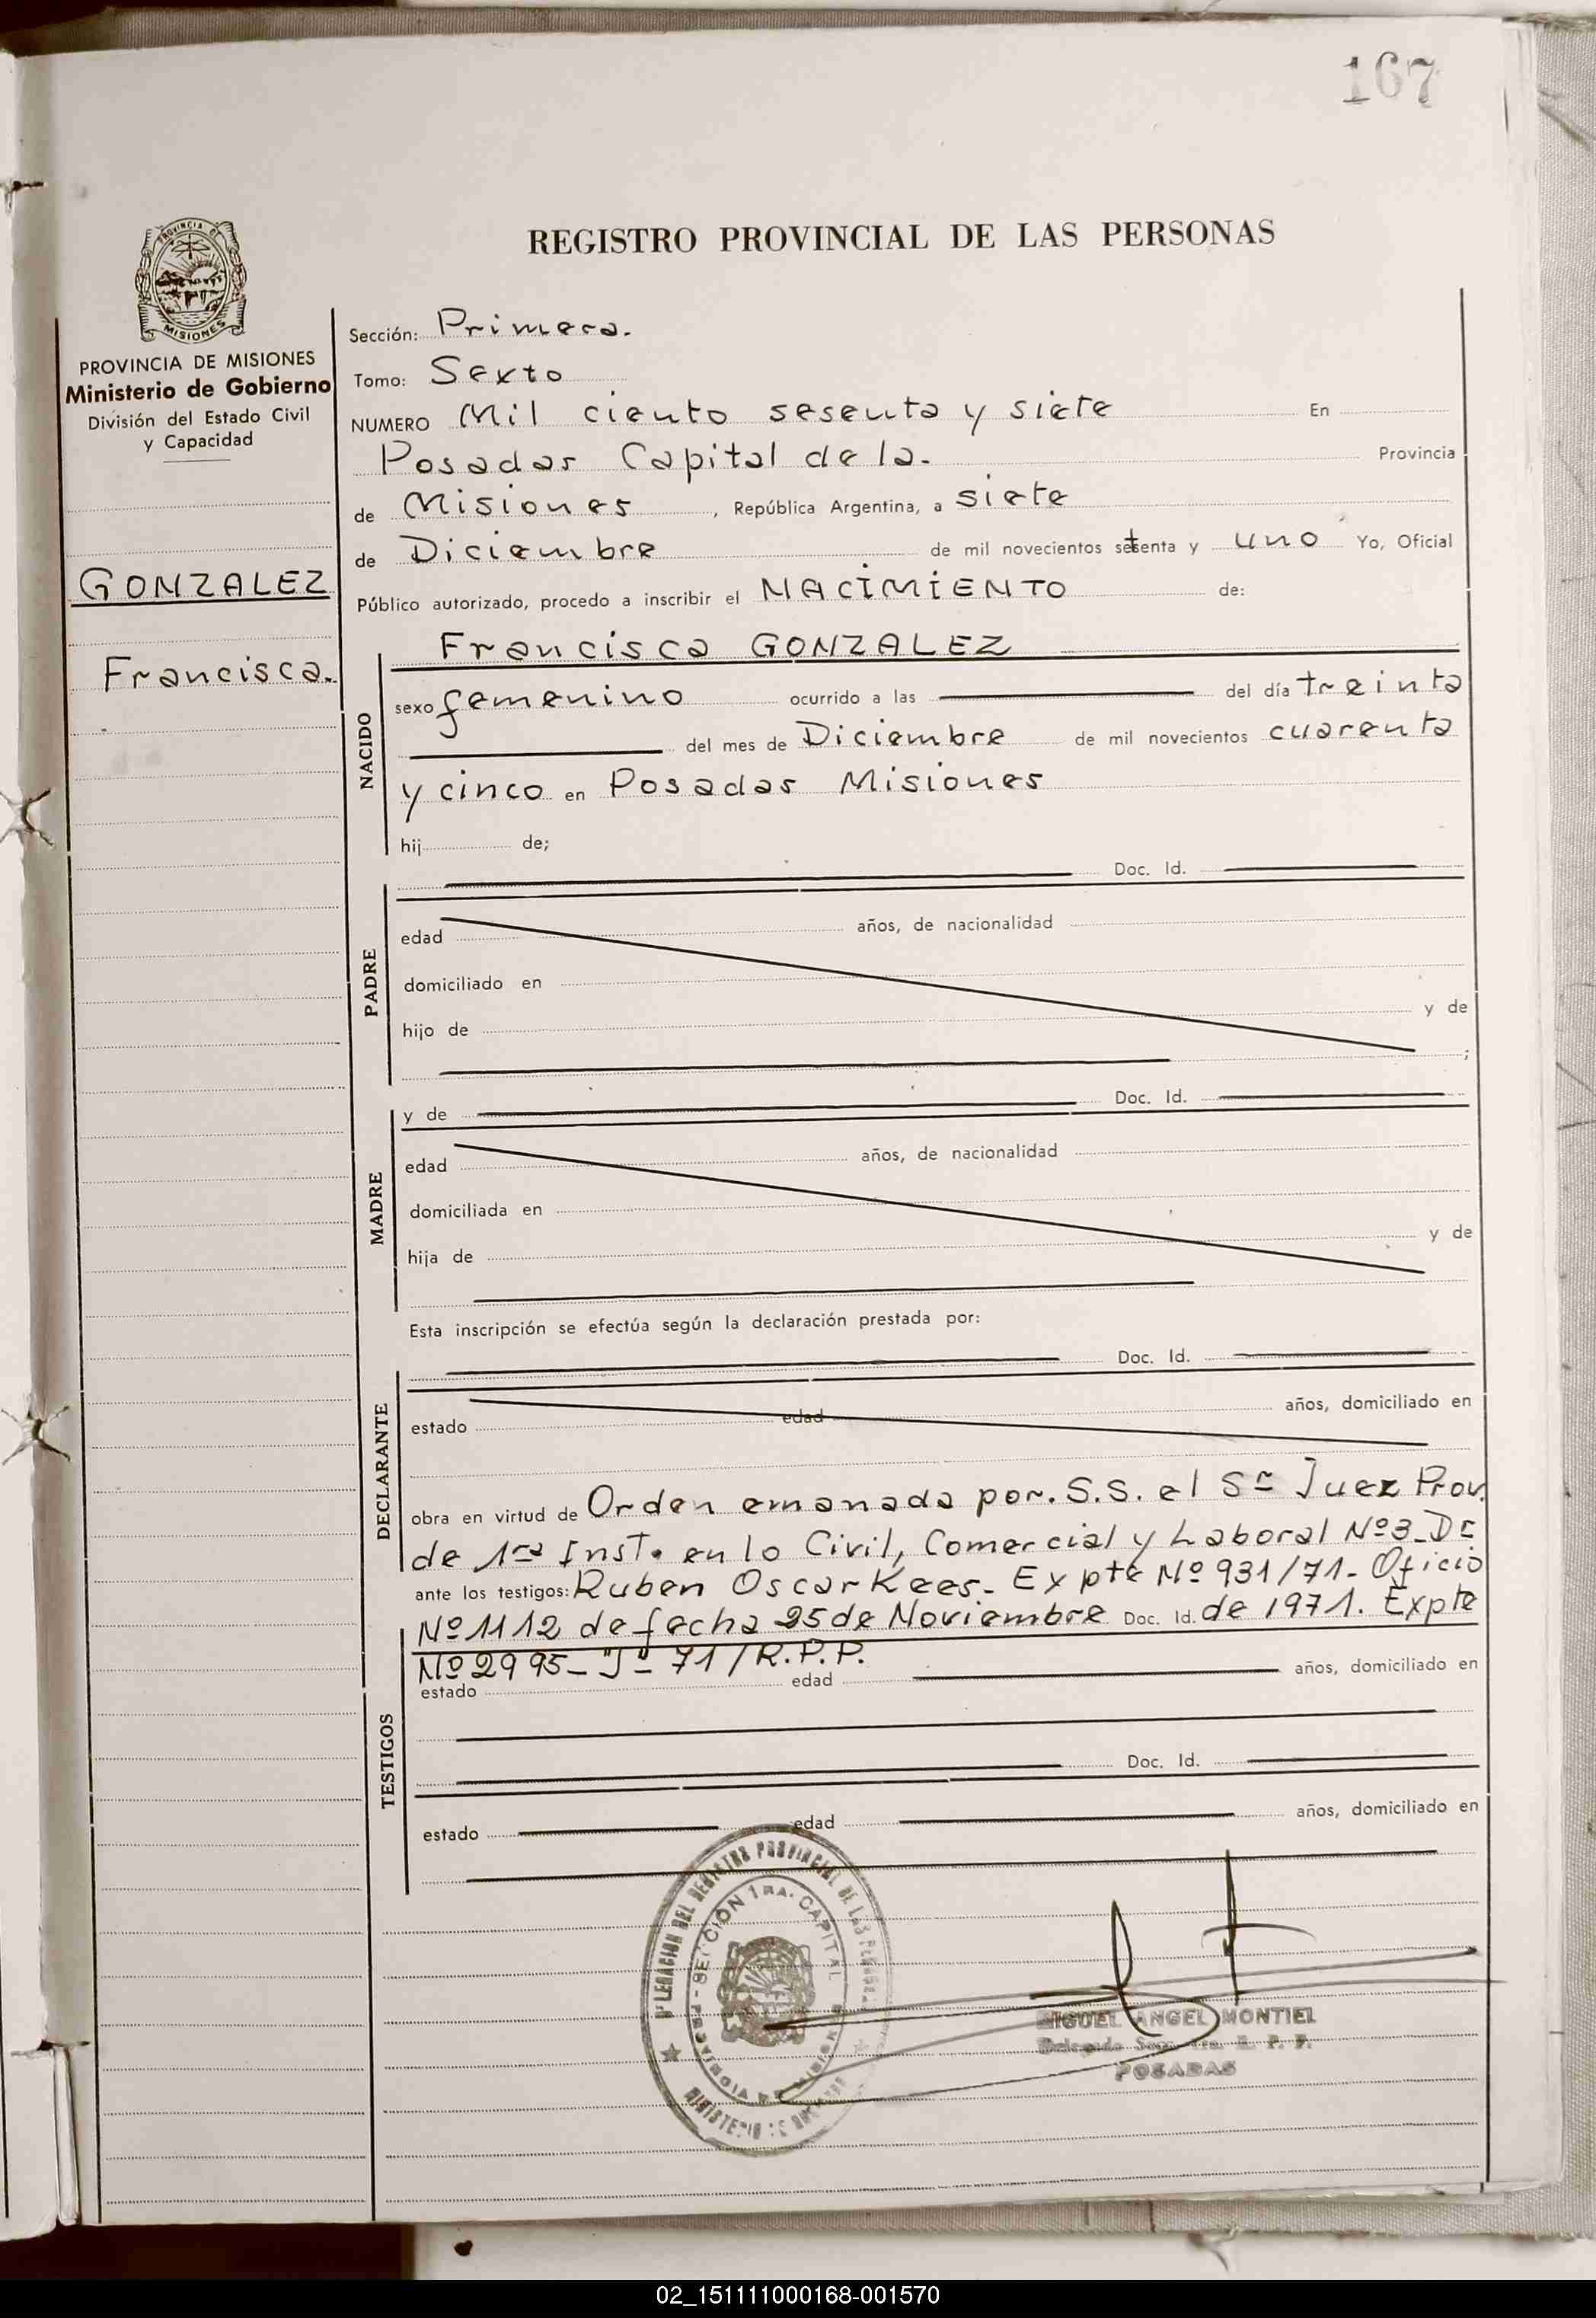 167
PROVINCIA DE
MISIONES
PROVINCIA DE MISIONES
Ministerio de Gobierno
División del Estado Civil
y Capacidad
GONZALEZ
Francisca.
REGISTRO PROVINCIAL DE LAS PERSONAS
Sección: Primera.
Tomo: Sexto
NUMERO Mil ciento sesenta y siete En
Posadas Capital de la. Provincia
de Misiones, República Argentina, a siete
de Diciembre de mil novecientos setenta y uno Yo, Oficial
Público autorizado, procedo a inscribir el NACIMIENTO de:
NACIDO
Francisca GONZALEZ
sexo femenino ocurrido a las del día treinta
del mes de Diciembre de mil novecientos cuarenta
y cinco en Posadas Misiones
hij de;
PADRE
Doc. Id.
edad años, de nacionalidad
domiciliado en
hijo de y de
;
MADRE
y de Doc. Id.
edad años, de nacionalidad
domiciliada en
hija de y de
Esta inscripción se efectúa según la declaración prestada por:
DECLARANTE
Doc. Id.
estado edad años, domiciliado en
obra en virtud de Orden emanada por. S.S. el Sr Juez Prov.
de 1ra Inst. en lo Civil, Comercial y Laboral Nº3_Dr
ante los testigos: Ruben Oscar Kees_ Expte Nº 931/71_ Oficio
Nº 1112 de fecha 25 de Noviembre Doc. Id. de 1971. Expte
Nº 2995_"J"_71/R.P.P.
TESTIGOS
estado edad años, domiciliado en
Doc. Id.
estado edad años, domiciliado en
DELEGACION DEL REGISTRO PROVINCIAL DE LAS PERSONAS
SECCIÓN 1RA. CAPITAL
PROVINCIA DE MISIONES
MINISTERIO DE GOBIERNO
MIGUEL ANGEL MONTIEL
Delegado Secc. 1ra. R. P. P.
POSADAS
02_151111000168-001570